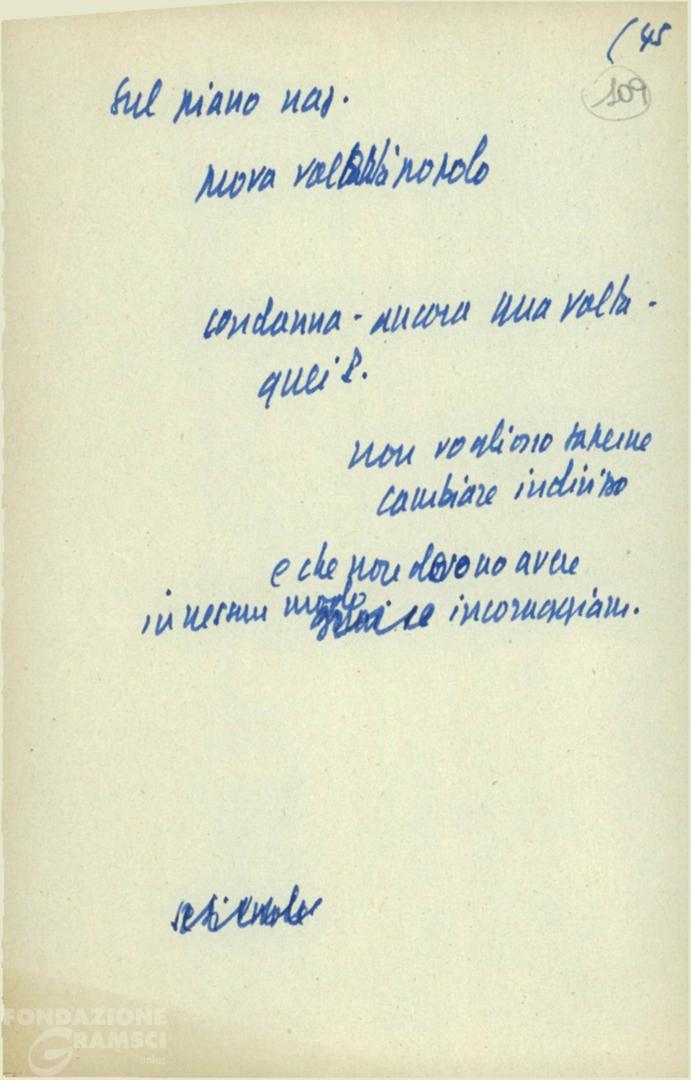 (45
109
Sul piano naz.
nuova volontà popolo
condanna - ancora una volta -
quei P.
non vogliono saperne
cambiare indirizzo
e che non devono avere
in nessun modo incoraggiam.
FONDAZIONE
GRAMSCI
onlus